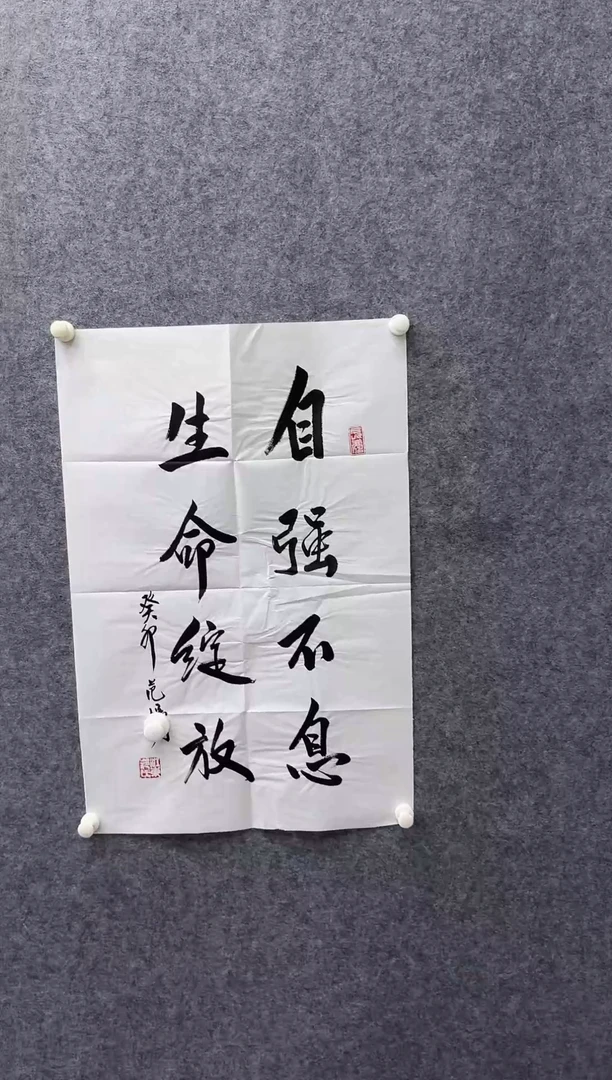 自强不息
生命绽放
癸卯 范